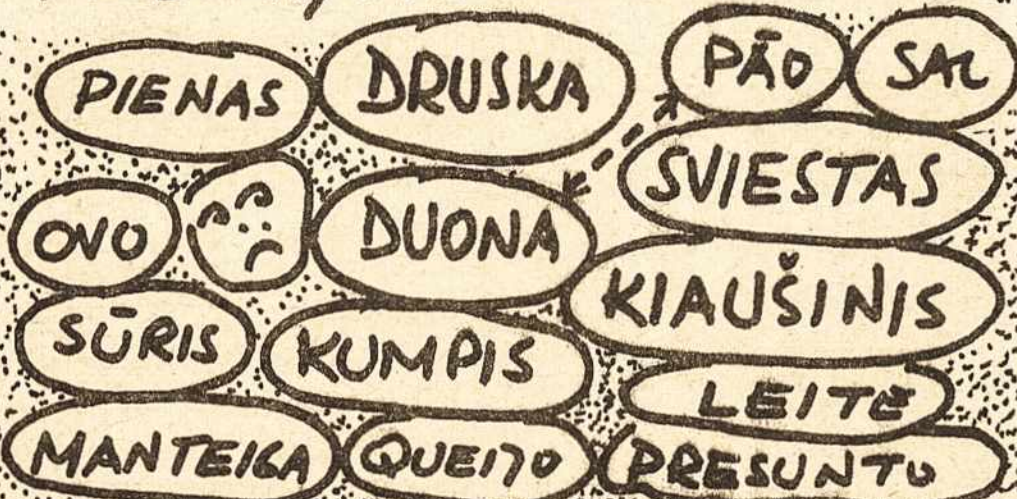 PIENAS
DRUSKA
PÃO
SAL
OVO
DUONA
SVIESTAS
KIAUŠINIS
SŪRIS
KUMPIS
LEITE
MANTEIGA
QUEIJO
PRESUNTO